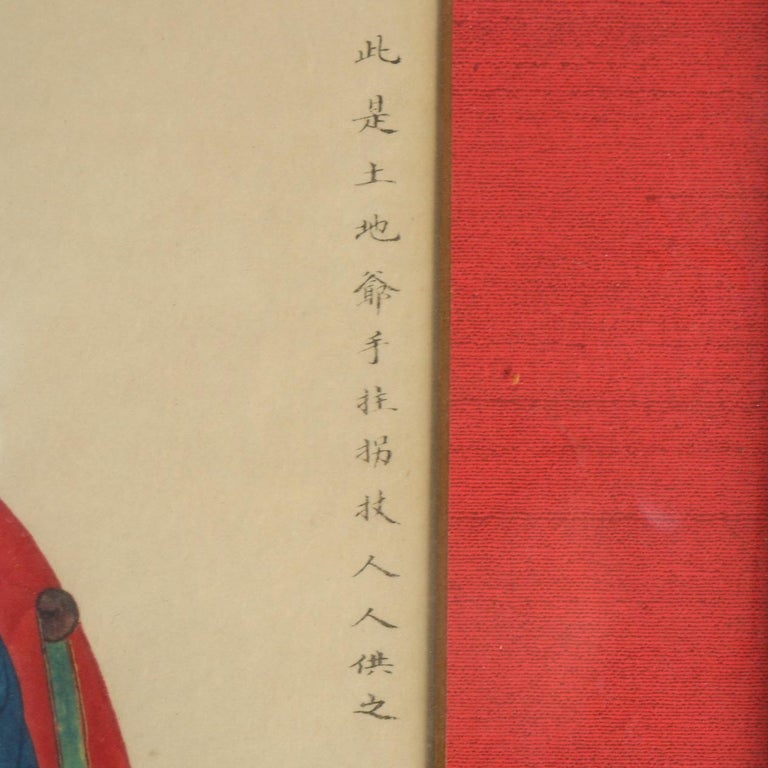 此是土地爺手拄拐杖人人供之